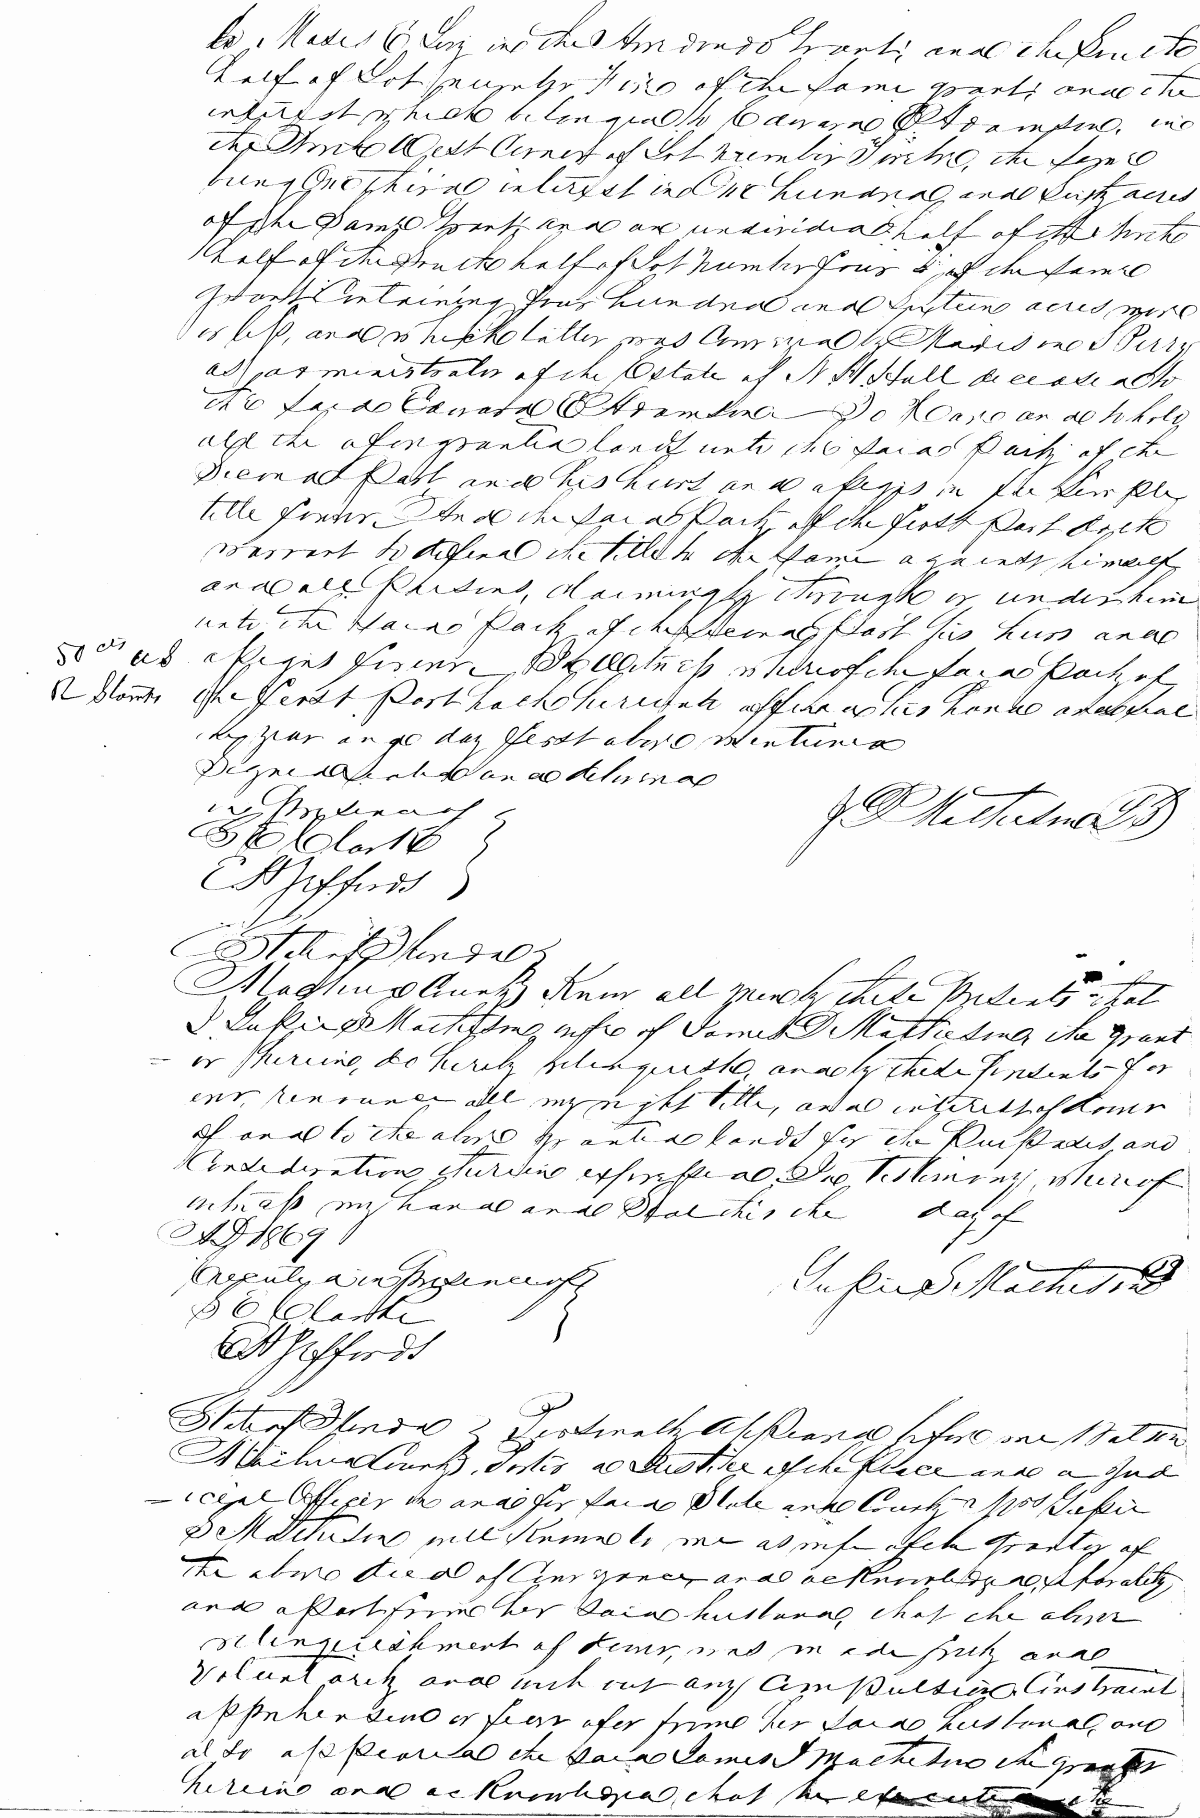 to Moses E Levy in the Arredondo Grant; and the South
half of Lot number Five of the same grant; and the
interest which belonged to Edward E Adamson, in
the North West Corner of Lot number Twelve, the same
being One third interest in One hundred and Sixty acres
of the same Grant; and an undivided half of the North
half of the South half of Lot number four 4 of the same
grant Containing four hundred and sixteen acres, more
or less, and which latter was Conveyed by Madison S Perry
as administrator of the Estate of N H Hull deceased to
the said Edward E Adamson. To Have and to hold
all the afore granted lands unto the said Party of the
Second Part and his heirs and assigns in fee simple,
title forever. And the said Party of the first Part doth
warrant to defend the title to the same against himself
and all Persons, claiming by through or under him
unto the said Party of the Second Part his heirs and
50 cts
R Stamps
assigns forever. In Witness whereof the said Party of
the first Part hath hereunto affixed his hand and seal
the year and day first above mentioned
Signed Sealed and delivered
in Presence of
S C Clarke
E A Jeffords
J D Matheson LS
State of Florida
Alachua County Know all men by these Presents that
I Gussie S Matheson, wife of James D Matheson, the grant
or herein, do hereby relinquish, and by these Presents for
ever, renounce all my right title, and interest of dower
of and to the above granted lands for the Purposes, and
Consideration therein expressed. In testimony whereof
witness my hand and Seal this the day of
AD 1869
Executed in Presence of
S C Clarke
E A Jeffords
Gussie S Matheson
State of Florida Personally Appeared before me Watson
Alachua County Porter a Justice of the Peace and a Jud
icial Officer in and for said State and County Mrs Gussie
S Matheson well Known to me as wife of the Grantor of
the above deed of Conveyance and acknowledged, separately,
and apart from her said husband, that the above
relinquishment of dower, was made freely and
Voluntarily and with out any Compulsion Constraint
apprehension or fear of or from her said husband, and
also appeared the said James D Matheson the grantor
herein and acknowledged, that he executed the